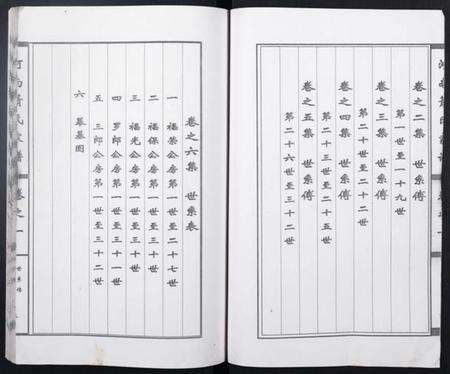 卷之二集　世系傳
第一世至一十九世
卷之三集　世系傳
第二十世至二十二世
卷之四集　世系傳
第二十三世至二十五世
卷之五集　世系傳
第二十六世至三十二世
卷之六集　世系卷
一　福榮公房第一世至二十七世
二　福保公房第一世至三十世
三　福光公房第一世至三十世
四　罗郎公房第一世至三十一世
五　三郎公房第一世至三十二世
六　墓墓图
卷之一
世系傳